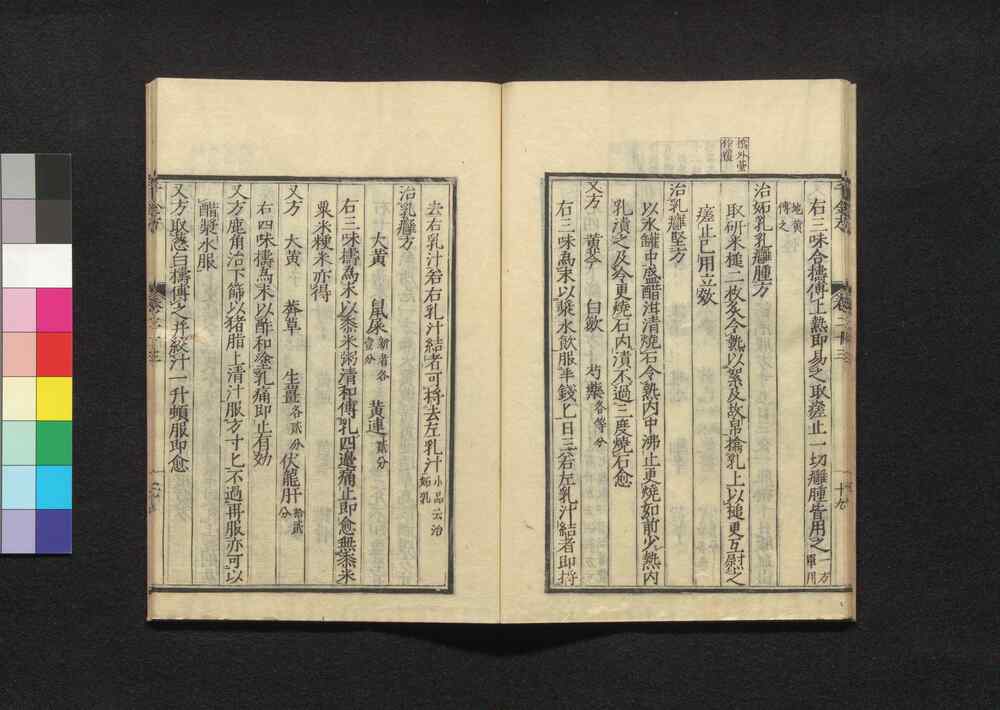 右三味合擣傅上熱即易之取瘥止一切癰腫皆用之一方單用
地黄傅之
治妬乳乳癰腫方
取研米槌二枚炙令熱以絮及故帛搶乳上以槌更互熨之
瘥止已用立效
治乳癰堅方
以水罐中盛醋洱清燒石令熱内中沸止更燒如前少熱内
乳漬之及冷更燒石内漬不過三度燒石愈
又方 黄芩 白蘞 芍藥各等分
右三味為末以漿水飲服半錢匕日三若左乳汁結者即捋
去右乳汁若右乳汁結者可捋去左乳汁小品云治妬乳
治乳癰方
大黄 鼠屎新者各壹分 黄連貳分
右三味擣為末以黍米粥清和傅乳四邊痛止即愈無黍米
粟米粳米亦得
又方 大黄 莽草 生薑各貳分 伏龍肝拾貳分
右四味擣為末以酢和塗乳痛即止有効
又方鹿角治下篩以猪脂上清汁服方寸匕不過再服亦可以
醋漿水服
又方取葱白擣傅之并絞汁一升頓服即愈